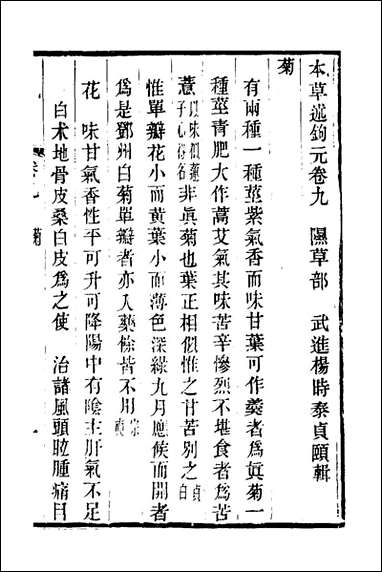 本草述鉤元卷九 隰草部 武進楊時泰貞頤輯
菊
有兩種一種莖紫氣香而味甘葉可作羹者爲眞菊一
種莖青肥大作蒿艾氣其味苦辛慘烈不堪食者爲苦
薏以味似蓮子心得名非眞菊也葉正相似惟之甘苦別之貞白
惟單瓣花小而黃葉小而薄色深綠九月應候而開者
爲是鄧州白菊單瓣者亦入藥餘皆不用宗奭
花 味甘氣香性平可升可降陽中有陰主肝氣不足
白朮地骨皮桑白皮爲之使 治諸風頭眩腫痛目
卷九 菊 一